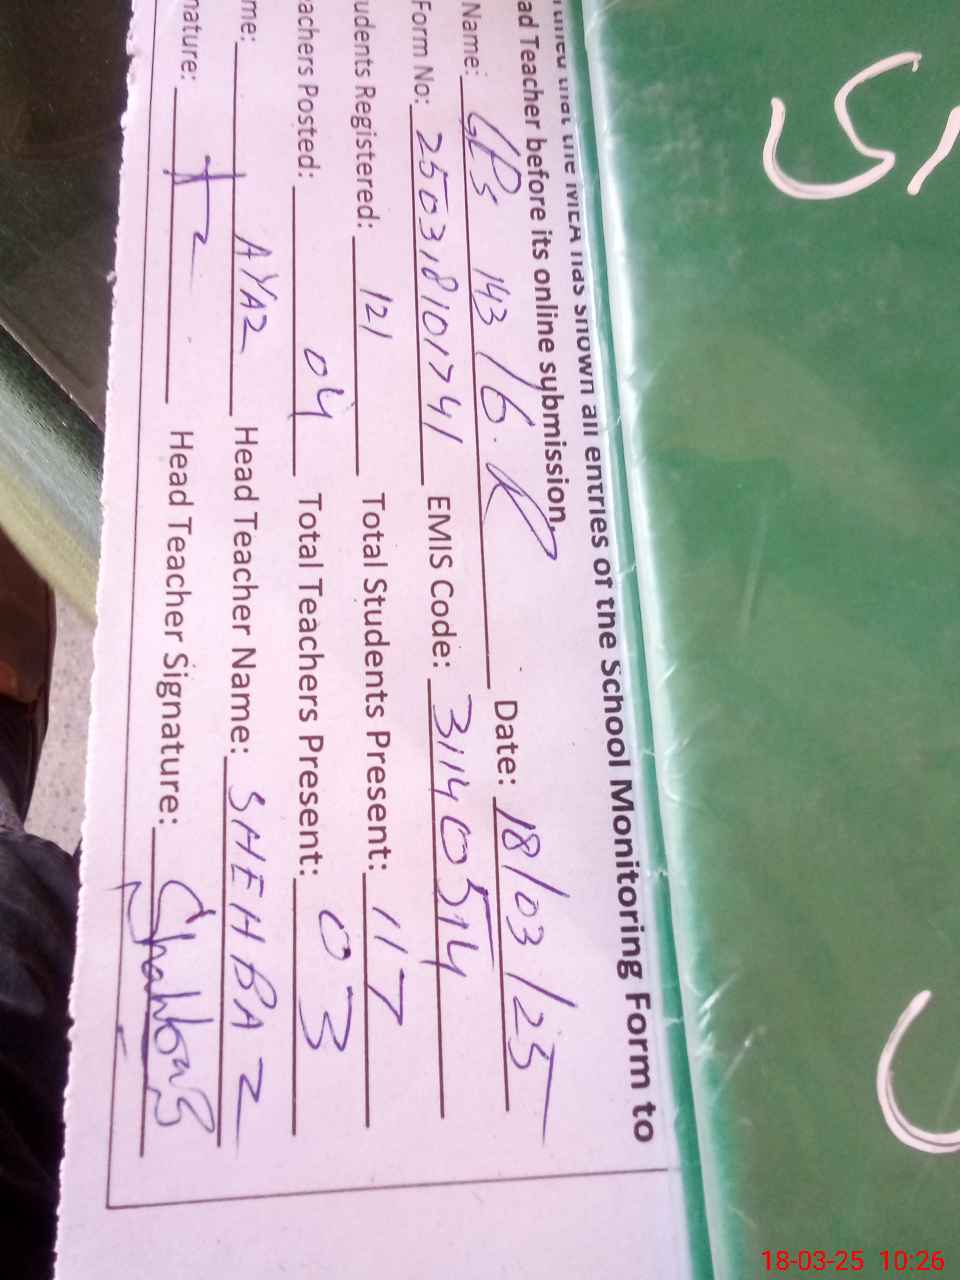 that the MEA has shown all entries of the School Monitoring Form to
ad Teacher before its online submission.
Name: GPS 143/6.R Date: 18/03/25
Form No: 250318101741 EMIS Code: 31140514
udents Registered: 121 Total Students Present: 117
achers Posted: 04 Total Teachers Present: 03
me: AYAZ Head Teacher Name: SHEHBAZ
nature: Head Teacher Signature: Shahbaz
18-03-25 10:26